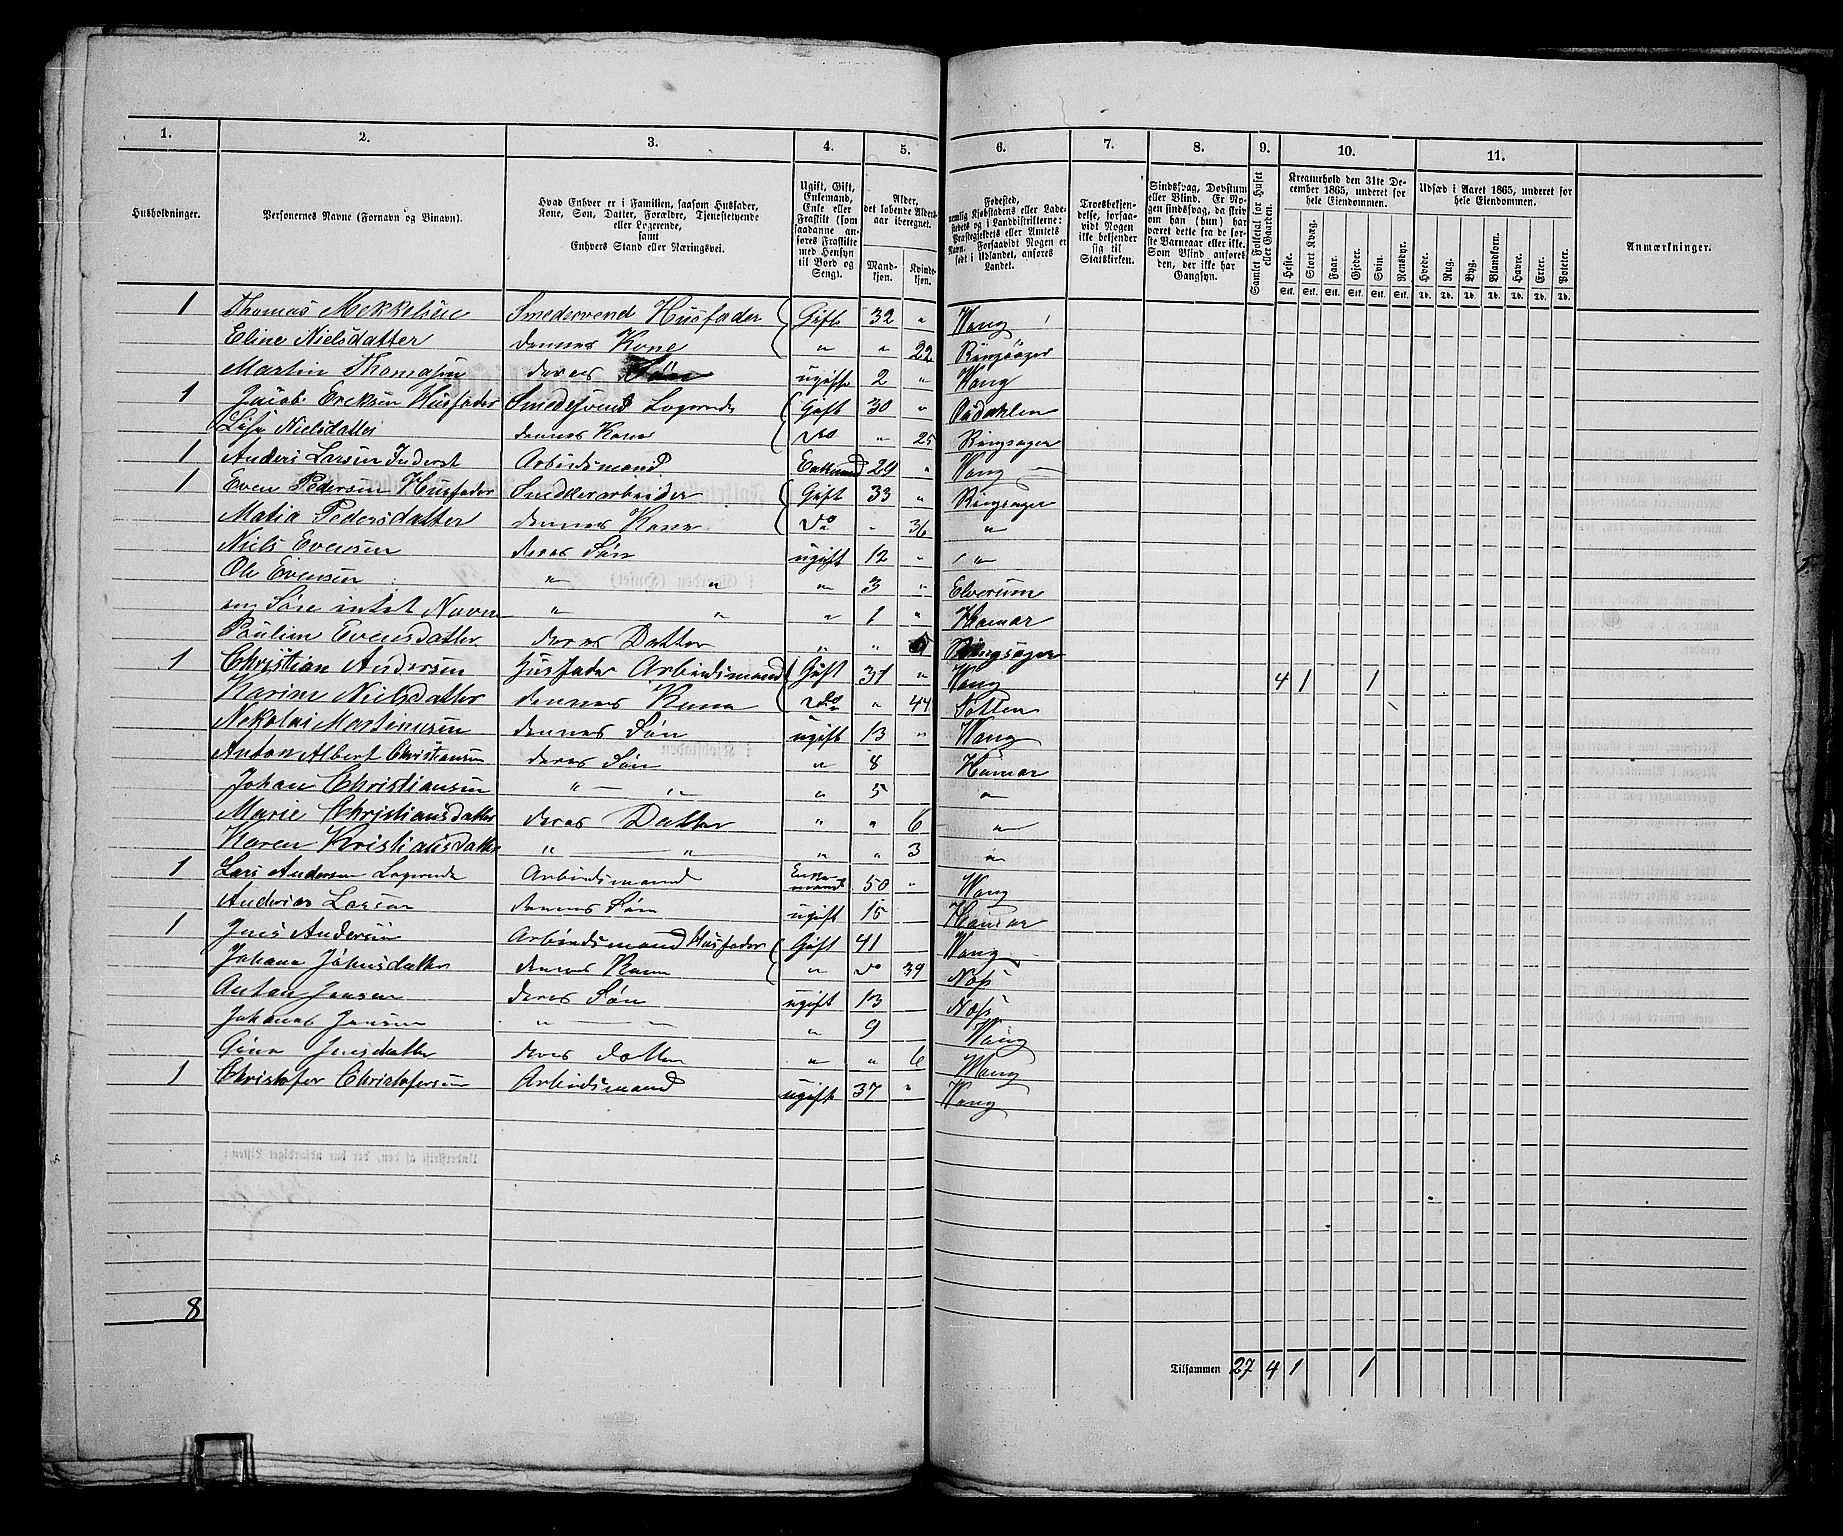 1. 2. 3. 4. 5. 6. 7. 8. 9. 10. 11.
Husholdninger.
Personernes Navne (Fornavn og Tilnavn).
Hvad Enhver er i Familien, saasom Husfader,
Kone, Søn, Datter, Forældre, Tjenestetyende
eller Logerende,
samt
Enhvers Stand eller Næringsvei.
Ugift, Gift,
Enkemand,
Enke eller
Fraskilt (som
saadanne an-
føres Fraskilte
med Hensyn
til Bord og
Seng).
Alder,
det løbende Alders-
aar iberegnet.
Mand-
kjøn.
Kvinde-
kjøn.
Fødested,
nemlig Kjøbstadens eller Lade-
stedets og i Landdistrikterne:
Præstegjeldets eller Amtets
Navn.
Forsaavidt Nogen er
født i Udlandet, anføres
Landet.
Troesbekjen-
delse, forsaa-
vidt Nogen
ikke bekjender
sig til
Statskirken.
Sindssvag, Døvstum
eller Blind. Er No-
gen sindssvag, da skriv
om han (hun) har
været dette fra de før-
ste Barneaar eller ikke.
Som Blind anføres
den, der ikke har
Gangsyn.
Samlet Folketal for Huset
eller Gaarden.
Kreaturhold den 31te De-
cember 1865, underet for
hele Eiendommen.
Heste. Stort Kvæg. Faar. Gjeder. Svin. Rensdyr.
Stk. Stk. Stk. Stk. Stk. Stk.
Udsæd i Aaret 1865, underet for
hele Eiendommen.
Hvede. Rug. Byg. Blandkorn. Havre. Erter. Poteter.
Td. Td. Td. Td. Td. Td. Td.
Anmærkninger.
1 Thomas Mekkelsen Smedesvend Husfader Gift 32 " Wang
Eline Nielsdatter dennes Kone " " 22 Ringsager
Martin Thomasen deres Søn ugift 2 " Wang
1 Jacob Eriksen Husfader Smedesvend Logerende Gift 30 "
Nielsdatter dennes Kone Do " 25 Ringsager
1 Anders Larsen Inderst Arbeidsmand Enkemand 29 " Wang
1 Even Pedersen Husfader Snedkerarbeider Gift 33 " Ringsager
Matia Pedersdatter dennes Kone Do " 36 "
Niels Evensen deres Søn ugift 12 " "
Ole Evensen " " " 3 " Elverum
en Søn intet Navn " " " 1 " Hamar
Pauline Evensdatter deres Datter " " Ringsager
1 Christian Andersen Husfader Arbeidsmand Gift 31 " Wang 4 1 1
Karine Nielsdatter dennes Kone Do " 44 Totten
Nekolai Martinusen dennes Søn ugift 13 " Wang
Anton Albert Christiansen deres Søn " 8 Hamar
Johan Christiansen " — " " 5 "
Marie Christiansdatter deres Datter " " 6 "
Karen Kristiansdatter " — " " " 3 "
1 Lars Andersen Logerende Arbeidsmand Enke-mand 50 " Wang
Andreas Larsen dennes Søn ugift 15 Hamar
1 Jens Andersen Arbeidsmand Husfader Gift 41 Wang
Johana Johnsdatter dennes Kone " do 39 Næs
Anton Jensen deres Søn ugift 13 Næs
Johanes Jensen " — — " 9 Wang
Gina Jensdatter deres datter " " 6 Wang
1 Christofer Christofersen Arbeidsmand ugift 37 " Wang
8
Tilsammen 27 4 1 1